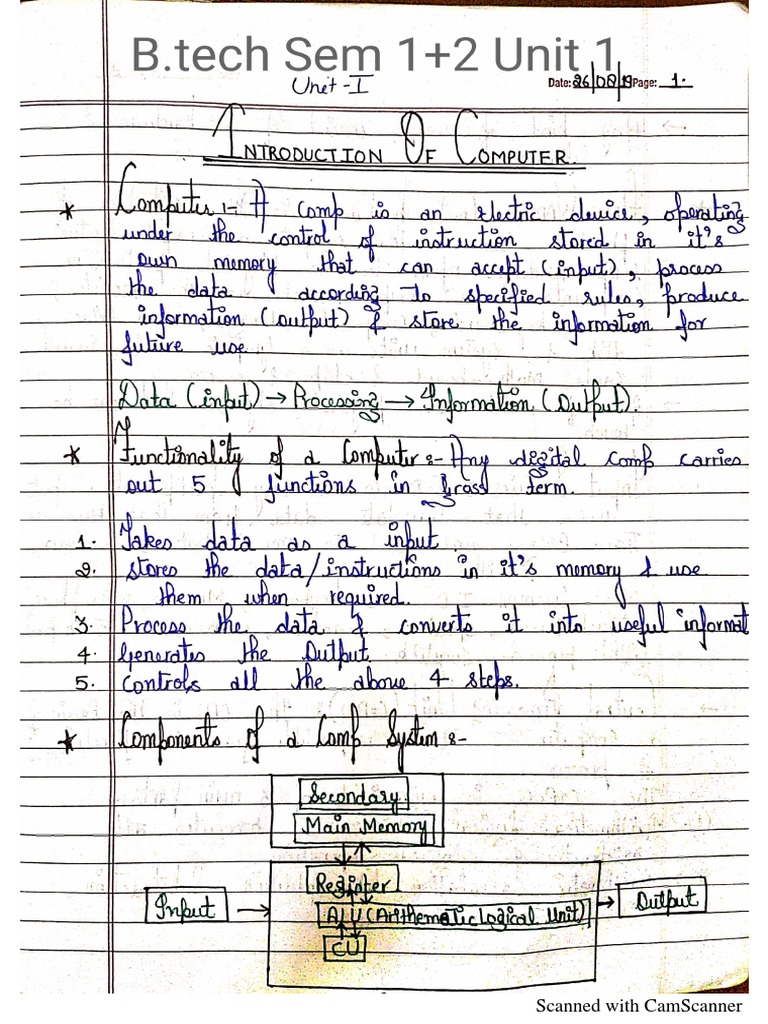 B.tech Sem 1+2 Unit 1
Unit-I
Date: 26/08/19 Page: 1.
INTRODUCTION OF COMPUTER
* Computer :- A comp is an electric device, operating
under the control of instruction stored in it's
own memory that can accept (input), process
the data according to specified rules, produce
information (output) & store the information for
future use.
Data (input) → Processing → Information (Output).
* Functionality of a Computer :- Any digital comp carries
out 5 functions in gross term.
1. Takes data as a input.
2. stores the data/instructions in it's memory & use
them when required.
3. Process the data & converts it into useful informat
4. Generates the Output.
5. Controls all the above 4 steps.
* Components of a Comp System :-
Secondary
Main Memory
Register
Input → ALU (Arithematic Logical Unit) → Output
CU
Scanned with CamScanner